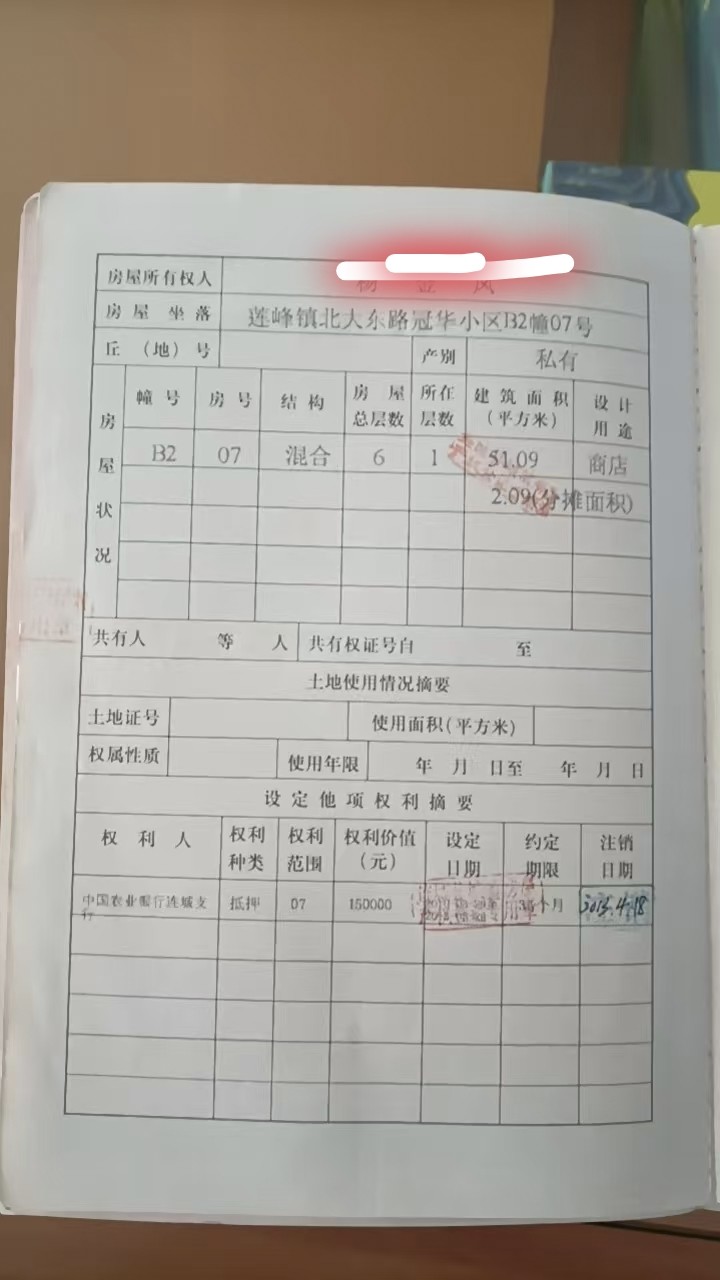 房屋所有权人
房屋坐落 莲峰镇北大东路冠华小区B2幢07号
丘（地）号 产别 私有
房屋状况 幢号 房号 结构 房屋总层数 所在层数 建筑面积（平方米） 设计用途
B2 07 混合 6 1 51.09 商店
2.09(分摊面积)
共有人 等 人 共有权证号自 至
土地使用情况摘要
土地证号 使用面积(平方米)
权属性质 使用年限 年 月 日至 年 月 日
设定他项权利摘要
权利人 权利种类 权利范围 权利价值（元） 设定日期 约定期限 注销日期
中国农业银行连城支行 抵押 07 150000 个月 2013.4.18